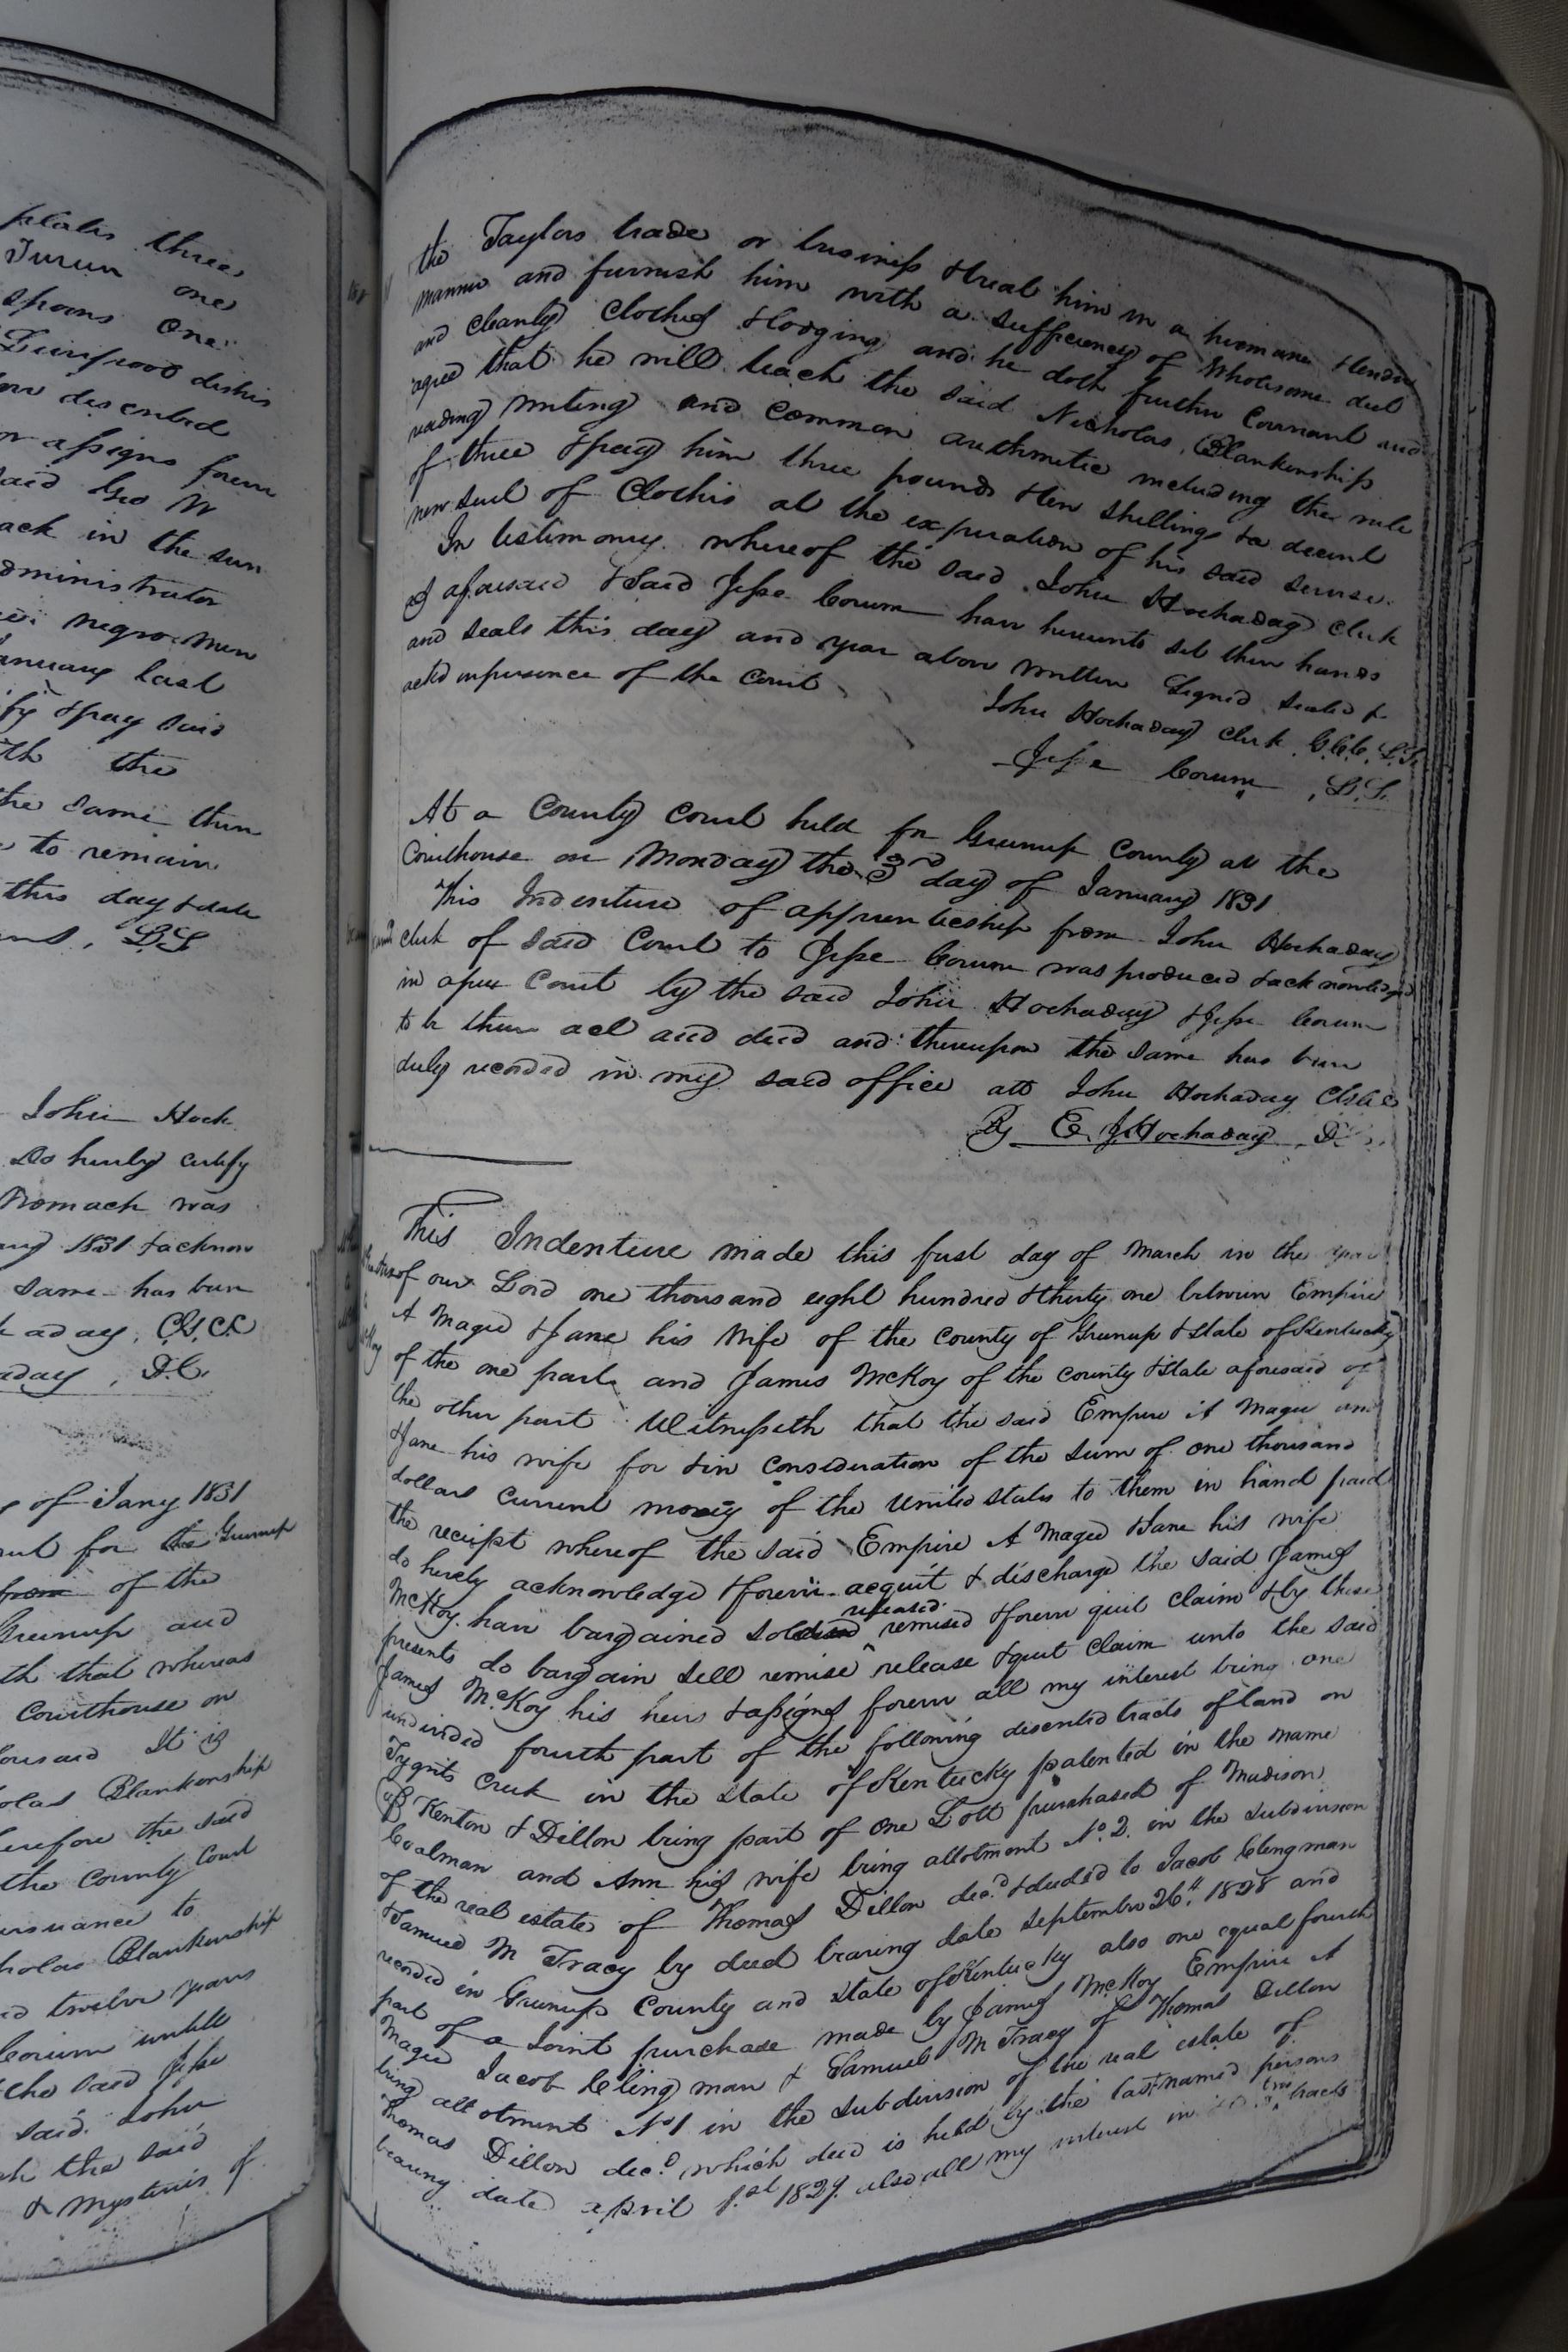 plates three
Turun one
spoons one
Liverpool dishis
low descrbed
or assigns forever
said Geo W
ack in the sum
dministrator
negro men
anuary last
fy & pay said
ith the
the same then
to remain
this day & date
L S
John Hock
Do hereby certify
Womack was
1831 & acknow
same has been
kaday, C.G.C.C
aday, D.C.
of Jany 1831
for the Greenup
from of the
Greenup and
th that whereas
Courthouse on
It is
olas Blankenship
herefore the said
the County Court
ursuance to
holas Blankenship
twelve years
Corum untill
the said Jesse
said John
the said
& mysteries of
the Taylors trade or business & treat him in a humane & tender
manner and furnish him with a sufficiency of Wholesome diet
and cleanly Clothes & lodging and he doth further Covenant and
agree that he will teach the said Nicholas Blankenship
reading writing and common arithmetic including the rule
of three & pay him three pounds & ten shillings & a decent
new suit of Clothis at the expiration of his said servise.
In testimony whereof the said John Hockaday clerk
as aforesaid & said Jesse Corum have hereunto set their hands
and seals this day and year above written Signed sealed &
acted in presence of the Court
John Hockaday Clerk G.C.C. L.S.
Jesse Corum , L.S.
At a County Court held for Greenup County at the
Courthouse on Monday the 3rd day of January 1831
This Indenture of apprenticeship from John Hockaday
clerk of said Court to Jesse Corum was produced & acknowledged
in open Court by the said John Hockaday & Jesse Corum
to be their act and deed and thereupon the same has been
duly recorded in my said office att John Hockaday
By E. J Hockaday D.
This Indenture made this first day of March in the year
of our Lord one thousand eight hundred & thirty one between Empire
A Magee & Jane his Wife of the County of Greenup & State of Kentucky
of the one part and James McKoy of the County & State aforesaid of
the other part Witnesseth that the said Empire A Magee and
& Jane his wife for & in consideration of the sum of one thousand
dollars current money of the United States to them in hand paid
the receipt whereof the said Empire A Magee & Jane his wife
do hereby acknowledge & forever acquit & discharge the said James
McKoy have bargained sold released remised & forever quit claim & by these
presents do bargain sell remise release & quit claim unto the said
James McKoy his heirs & assigns forever all my interest being one
undivided fourth part of the following descented tracts of land on
Tygrts Creek in the State of Kentucky patented in the name
of Kenton & Dillon being part of one Lott purchased of Madison
Coalman and Ann his wife being allotment No. 2. in the subdivision
of the real estate of Thomas Dillon decd. & deeded to Jacob Clingman
& Samuel M Tracy by deed bearing date September 26th 1828 and
recorded in Greenup County and State of Kentucky also one equal fourth
part of a Joint purchase made by James McKoy Empire A
Magee Jacob Clingman & Samuel M Tracy of Thomas Dillon
being allotment No 1 in the subdivision of the real estate of
Thomas Dillon decd. which deed is held by the last named persons
bearing date april 1.st 1829. also all my interest in two tracts